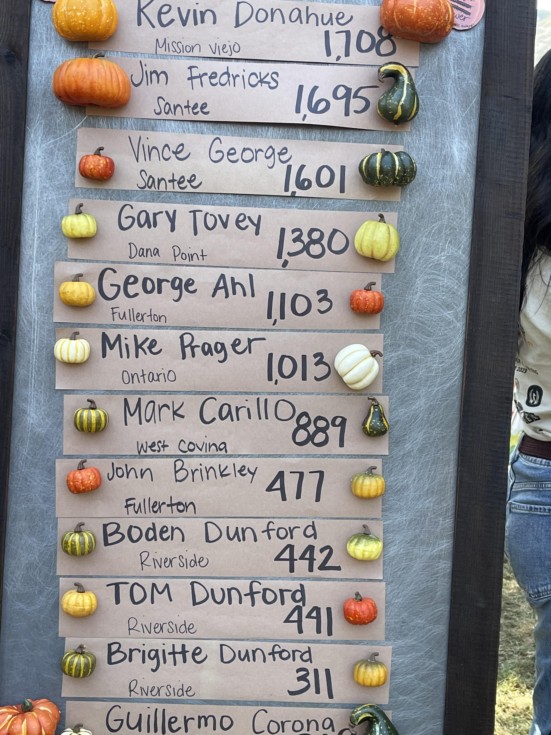 Kevin Donahue
Mission Viejo 1,708
Jim Fredricks
Santee 1,695
Vince George
Santee 1,601
Gary Tovey
Dana Point 1,380
George Ahl
Fullerton 1,103
Mike Prager
Ontario 1,013
Mark Carillo
West Covina 889
John Brinkley
Fullerton 477
Boden Dunford
Riverside 442
TOM Dunford
Riverside 441
Brigitte Dunford
Riverside 311
Guillermo Corona